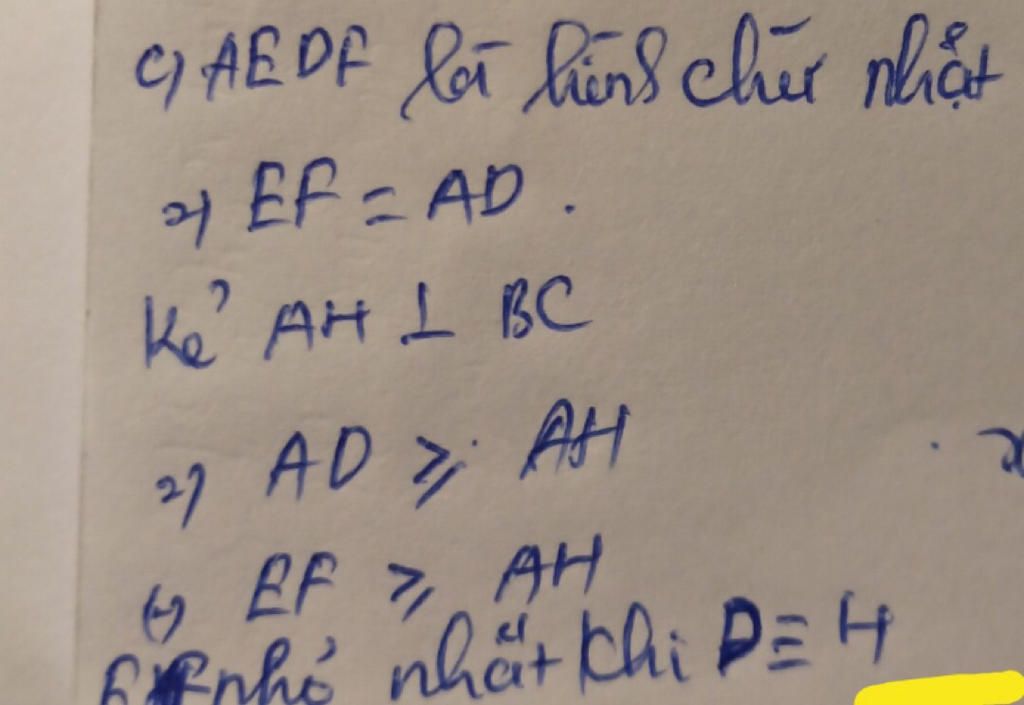 c) AEDF là hình chữ nhật
=> EF = AD.
Kẻ AH ⊥ BC
=> AD ≥ AH
(=) EF ≥ AH
EF nhỏ nhất khi D ≡ H